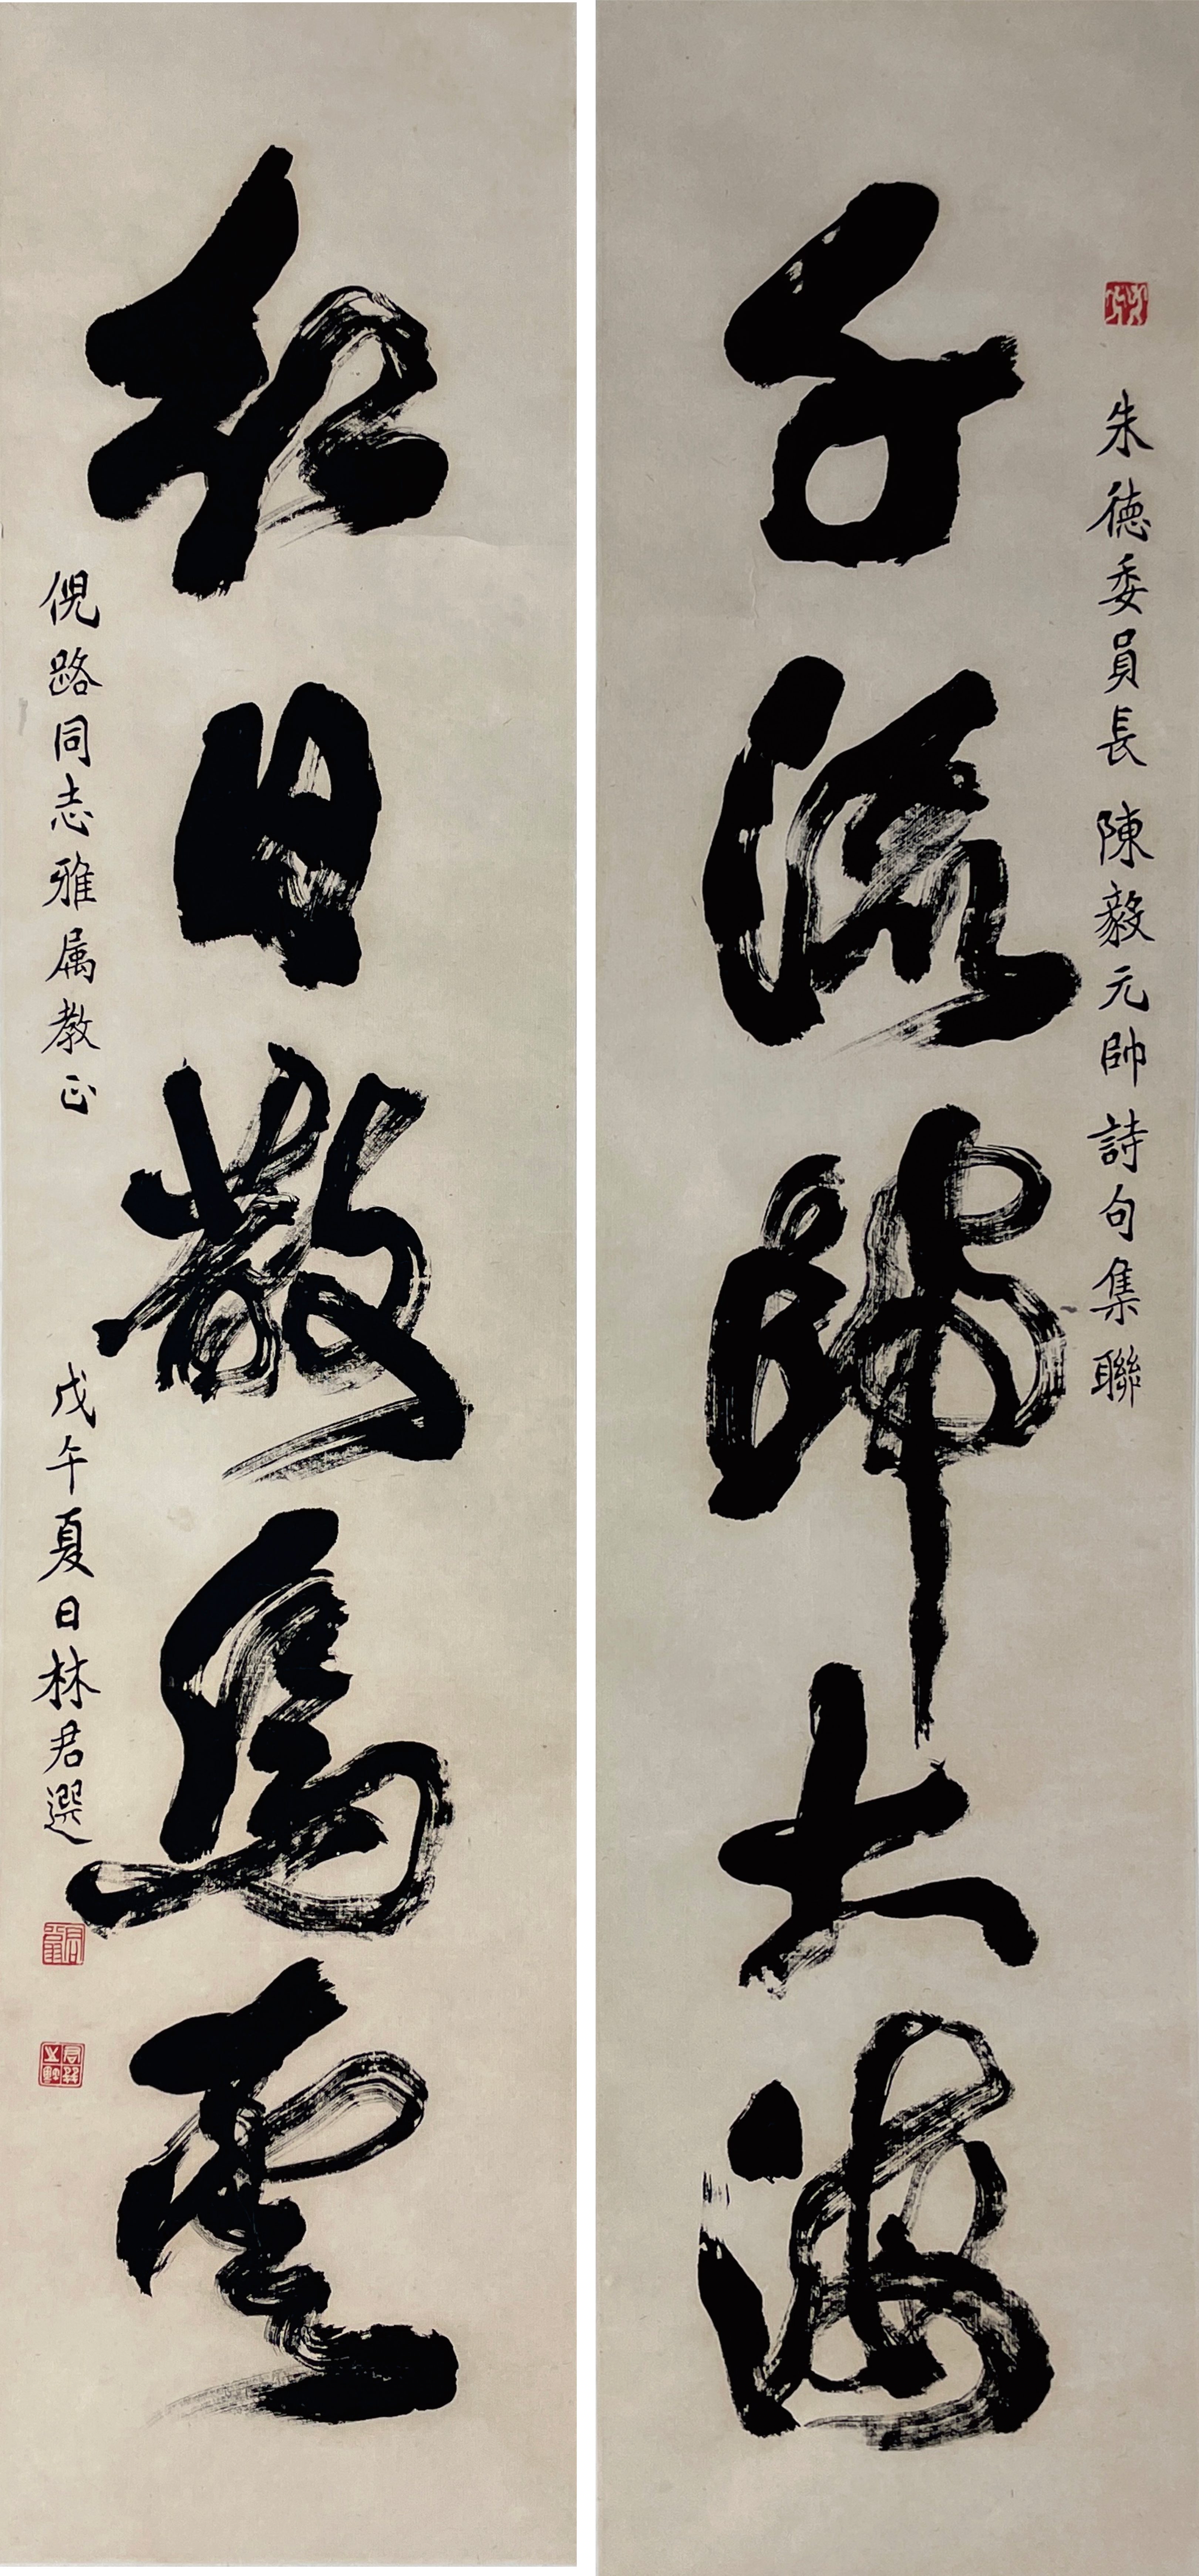 朱德委員長 陳毅元帥詩句集聯
千流歸大海
紅日散烏雲
倪路同志雅属教正
戊午夏日林君選